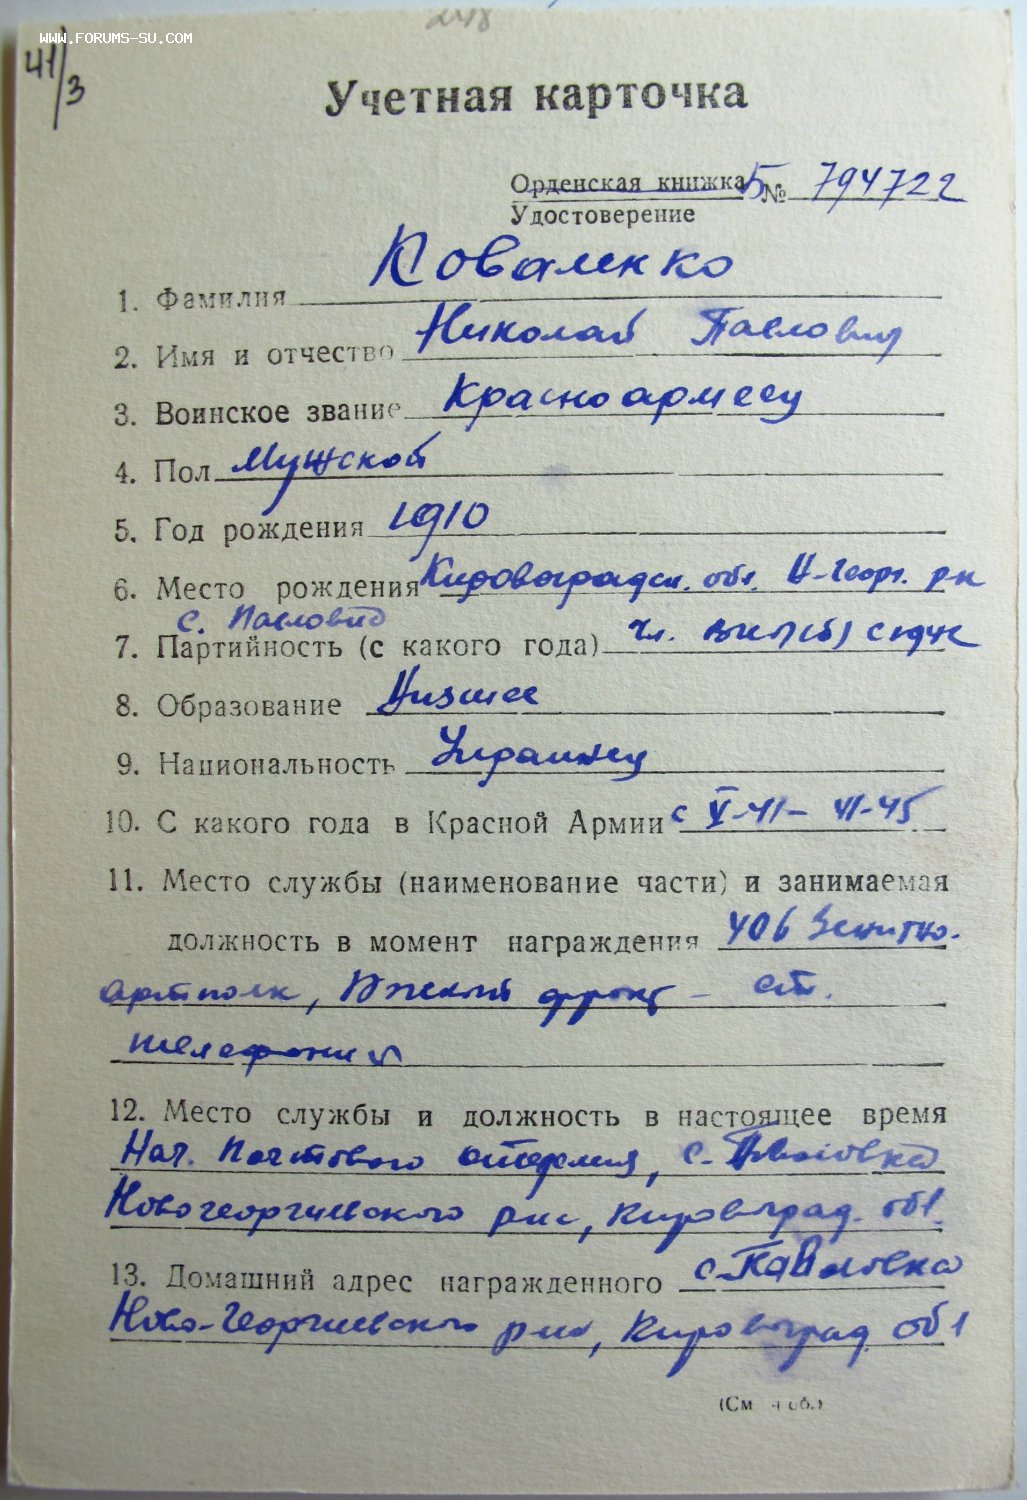 WWW.FORUMS-SU.COM
41/3
Учетная карточка
Орденская книжка Б № 794722
Удостоверение
1. Фамилия Коваленко
2. Имя и отчество Николай Павлович
3. Воинское звание Красноармеец
4. Пол Мужской
5. Год рождения 1910
6. Место рождения Кировоградск. обл. Н-Георг. р-н
с. Павловка
7. Партийность (с какого года) Чл. ВКП(б) с
8. Образование Низшее
9. Национальность Украинец
10. С какого года в Красной Армии с V-41 - VI-45
11. Место службы (наименование части) и занимаемая
должность в момент награждения 406 Зенитно-
артполк, Южный фронт - ст.
телефонист
12. Место службы и должность в настоящее время
Нач. Почтового отделения, с. Павловка
Новогеоргиевского р-на, Кировоград. обл.
13. Домашний адрес награжденного с. Павловка
Ново-Георгиевского р-на, Кировоград. обл
(См об.)